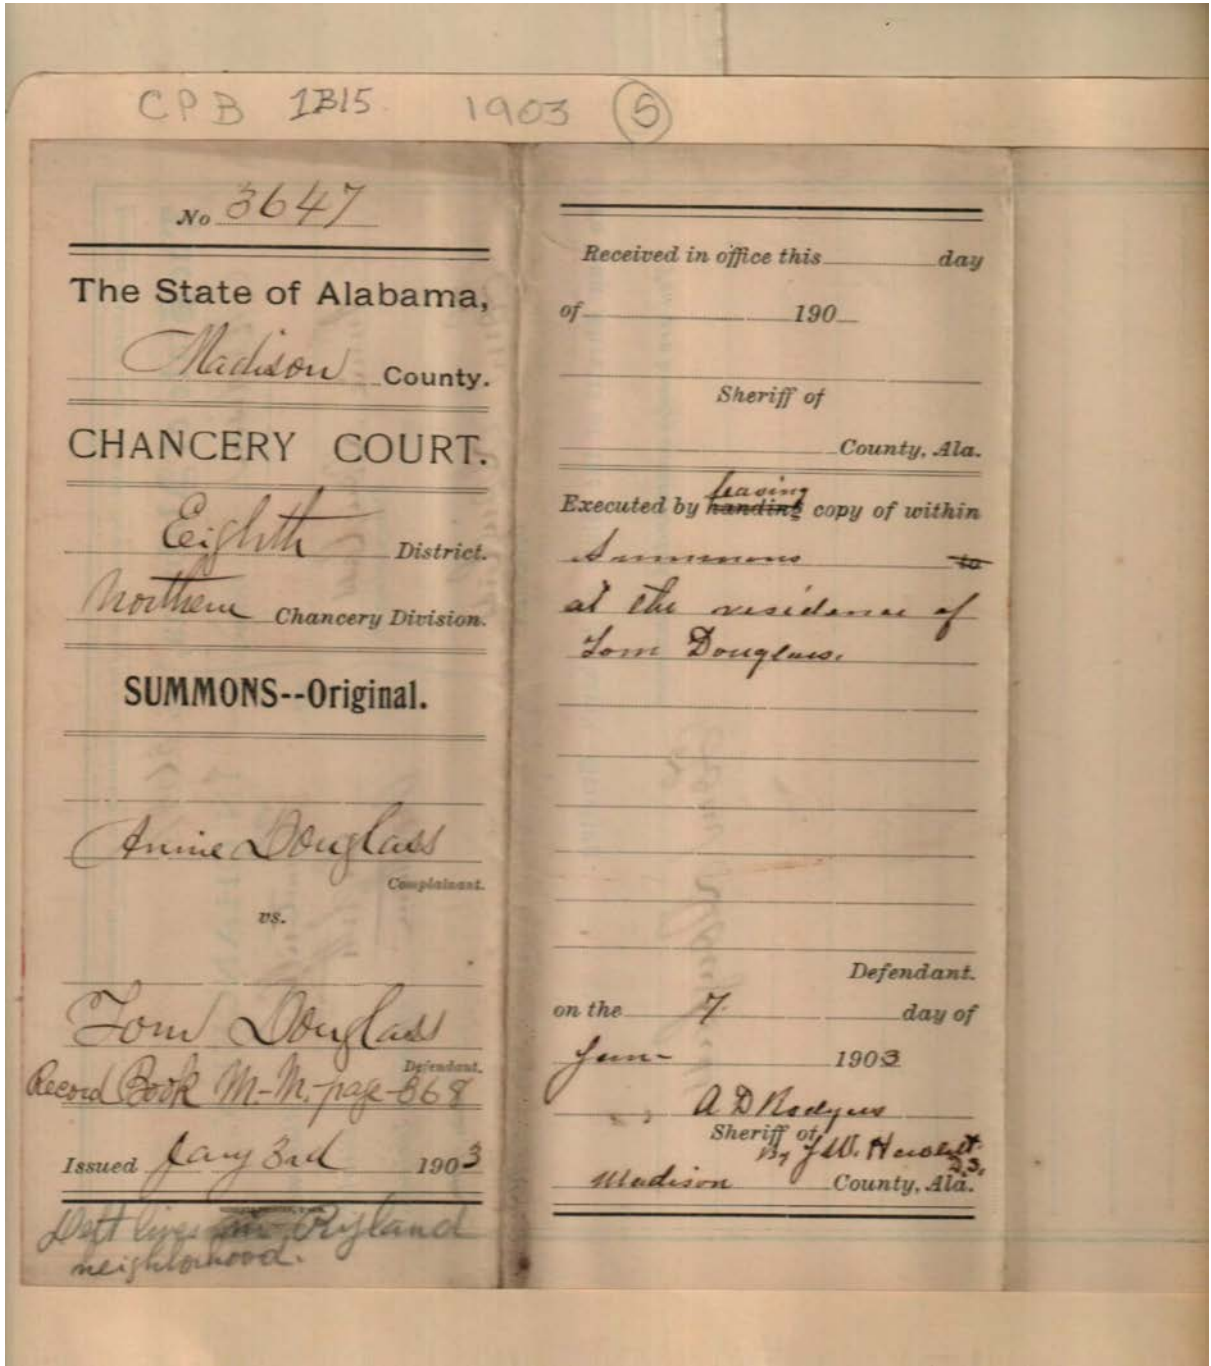 CPB 1B15 1903 5
No 3647
The State of Alabama,
Madison County.
CHANCERY COURT.
Eighth District.
Northern Chancery Division.
SUMMONS--Original.
Annie Douglass
Complainant.
vs.
Tom Douglass
Defendant.
Record Book M.-M.-page-368
Issued Jany 3rd 1903
Deft lives Ryland
neighborhood.
Received in office this day
of 190
Sheriff of
County, Ala.
leaving
Executed by handing copy of within
Summons to
at the residence of
Tom Douglass.
Defendant.
on the 7 day of
Jan- 1903
A D Rodgers
Sheriff of
By J.W. D.S.
Madison County, Ala.